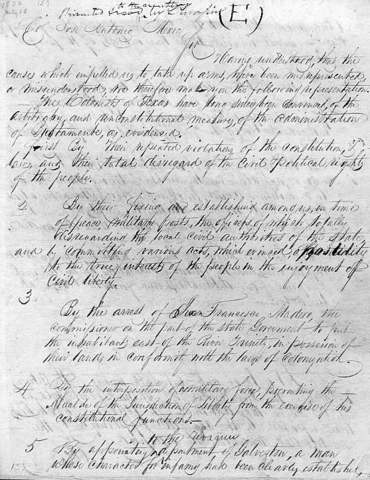 (E)
Col. San Antonio Mexia
Sir
Having understood, that the
causes which impelled us to take up arms, have been misrepresented,
or misunderstood, we therefore make you the following representation.
The Colonists of Texas have long since been convinced, of the
arbitrary, and unconstitutional measures, of the administration
of Bustamente, as evidenced,
first By their repeated violations of the constitution, &
laws, and their total disregard of the Civil & Political rights
of the people.
2 By their fixing and establishing among us, in time
of peace military posts, the officers of which totally
disregarding the local civil authorities of the State,
and by committing various acts, which evinced, a hostility
to the true interest of the people in the enjoyment of
Civil liberty
3
By the arrest of Juan Francisco Madero, the
commissioner on the part of the State Government to put
the inhabitants east of the River Trinity, in possession of
their lands in conformity with the laws of Colonization.
4 By the interposition of a military force, preventing the
Alcalde of the Jurisdiction of Liberty from the exercise of his
constitutional functions.
to the revenue
5 By appointing department of Galveston, a man
whose character for infamy had been clearly established,